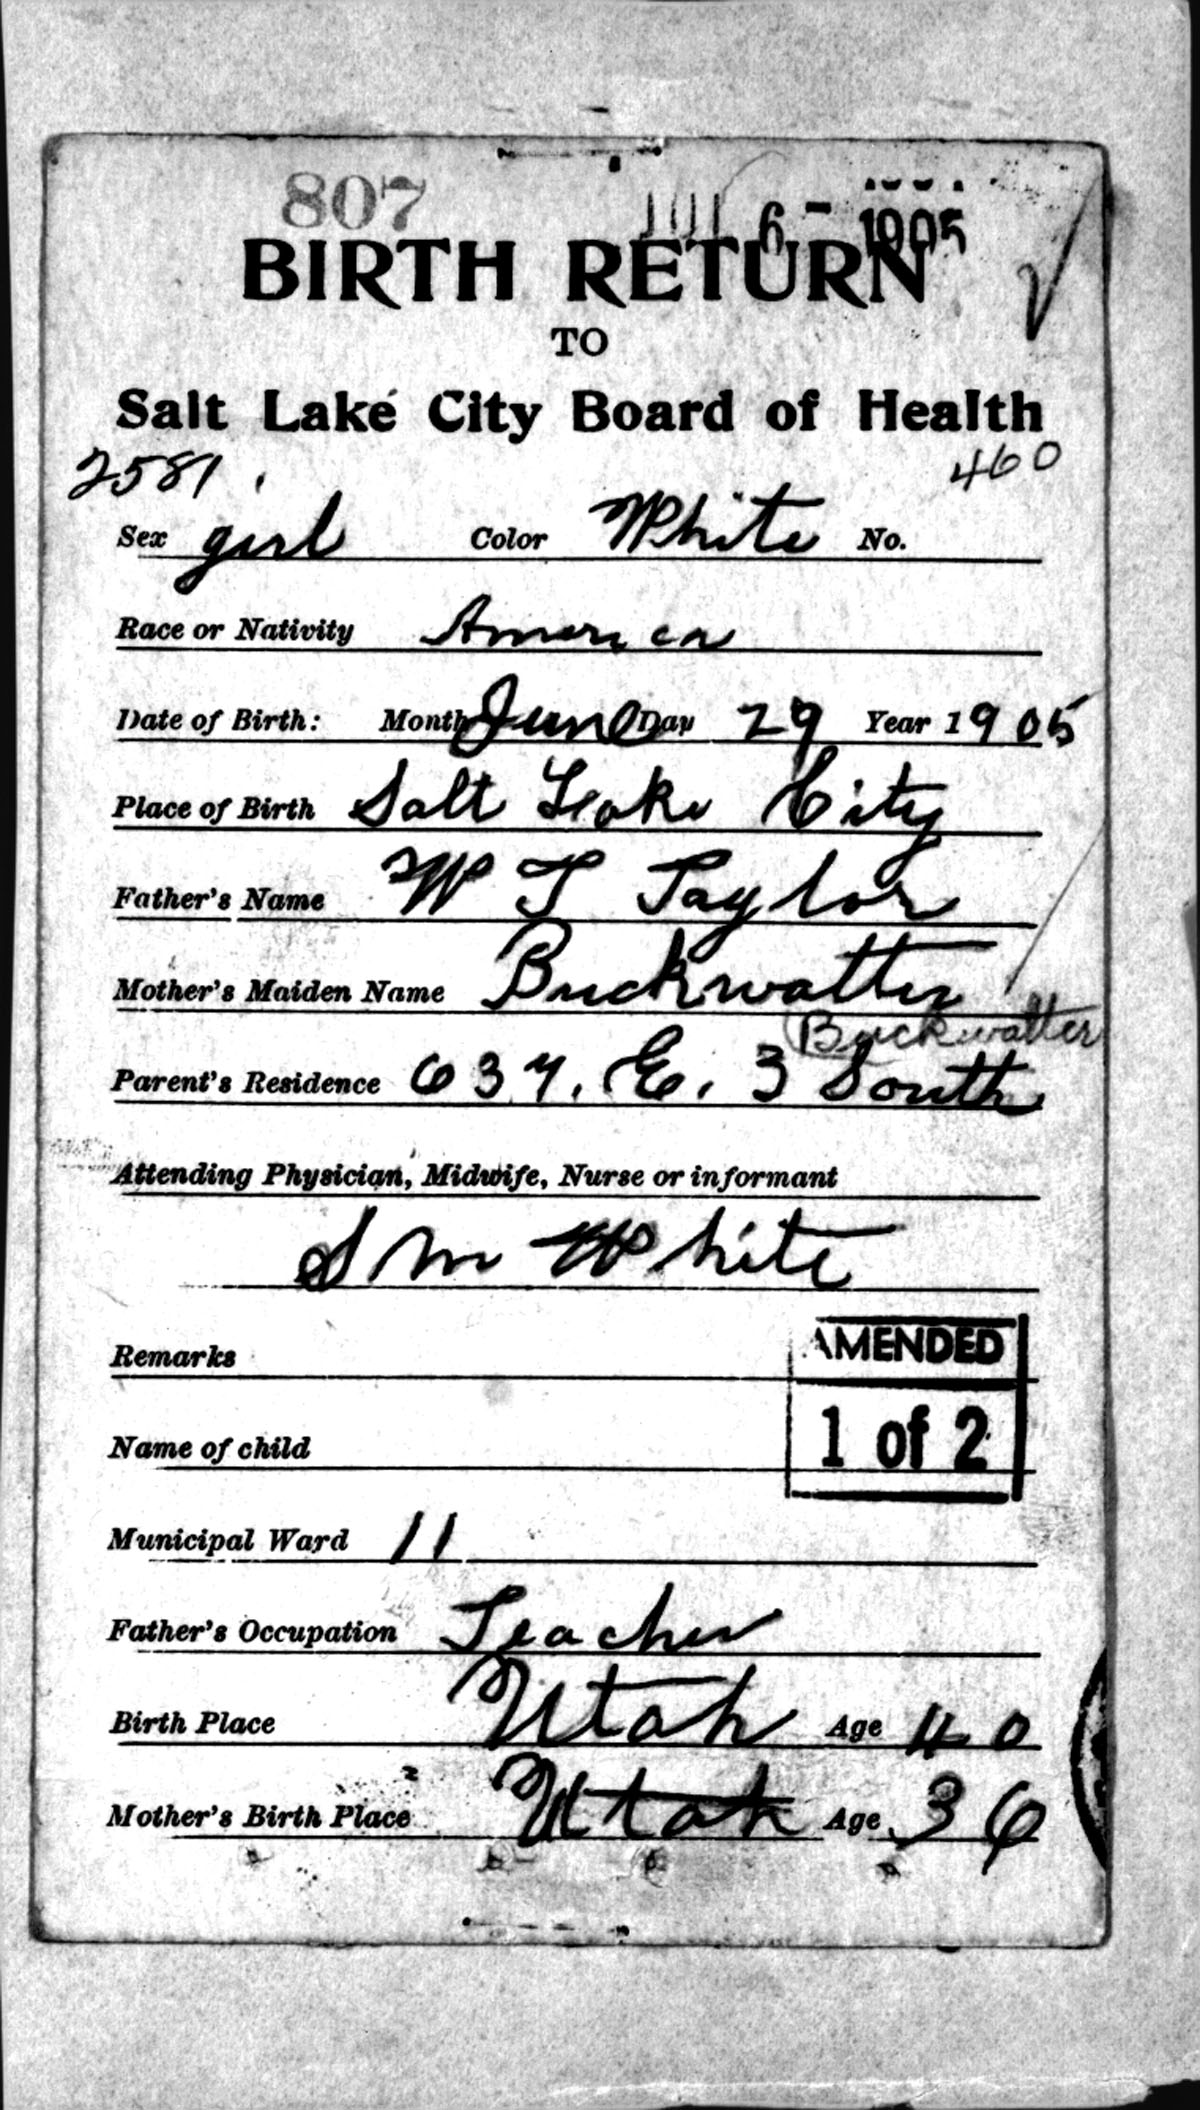 807 JUL 6 - 1905
BIRTH RETURN
TO
Salt Lake City Board of Health
2581 460
Sex girl Color White No.
Race or Nativity America
Date of Birth: Month June Day 29 Year 1905
Place of Birth Salt Lake City
Father's Name W T Taylor
Mother's Maiden Name Buckwatter
Buckwatter
Parent's Residence 637. E. 3 South
Attending Physician, Midwife, Nurse or informant
S M White
Remarks
AMENDED
Name of child
1 of 2
Municipal Ward 11
Father's Occupation Teacher
Birth Place Utah Age 40
Mother's Birth Place Utah Age 36